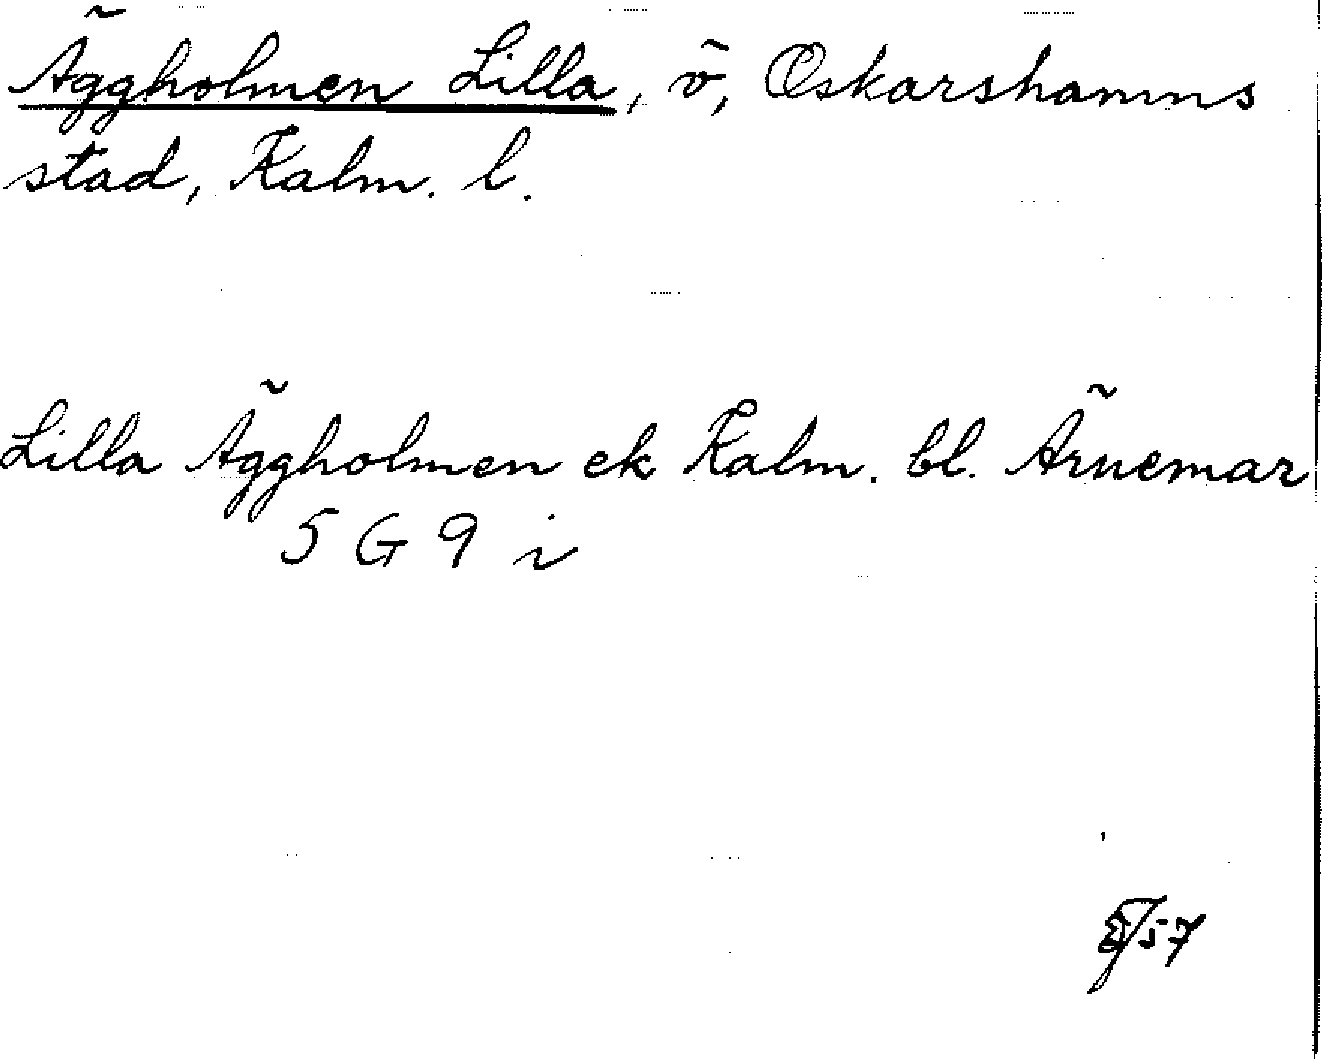 Äggholmen Lilla, ö, Oskarshamns
stad, Kalm. l.
Lilla Äggholmen ek Kalm. bl. Ärnemar
5 G 9 i